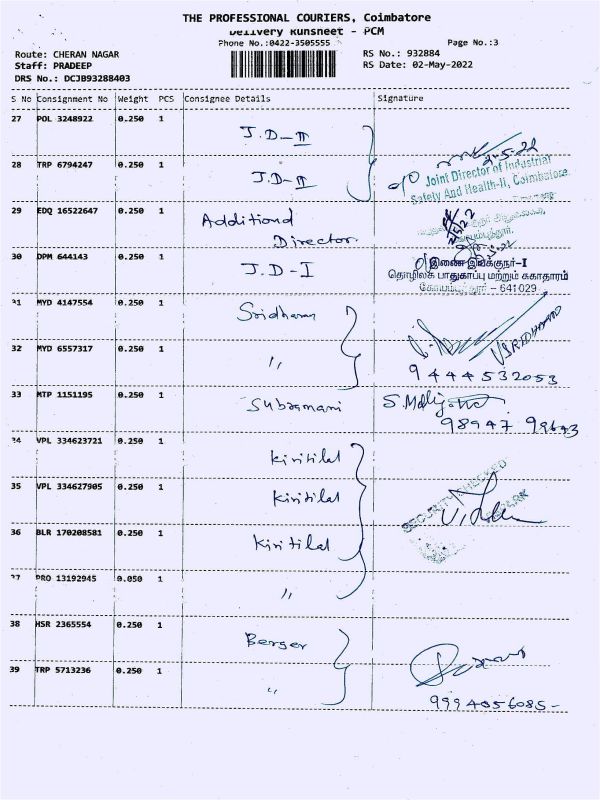 THE PROFESSIONAL COURIERS, Coimbatore
Delivery Runsheet - PCM
Phone No.:0422-3505555
Page No.:3
Route: CHERAN NAGAR
RS No.: 932884
Staff: PRADEEP
RS Date: 02-May-2022
DRS No.: DCJB93288403
S No Consignment No Weight PCS Consignee Details Signature
27 POL 3248922 0.250 1 J.D-II
2-5-22
28 TRP 6794247 0.250 1 J.D-II
Joint Director of Industrial
Safety And Health-II, Coimbatore
29 EDQ 16522647 0.250 1 Additional
Director
30 DPM 644143 0.250 1 J.D-I
இணை இயக்குநர்-I
தொழிலக பாதுகாப்பு மற்றும் சுகாதாரம்
கோயம்புத்தூர் - 641029
31 MYD 4147554 0.250 1 Sridharan
V SRIDHARAN
32 MYD 6557317 0.250 1 "
9444532053
33 MTP 1151195 0.250 1 Subramani
98947
34 VPL 334623721 0.250 1 Kiritilal
SECURITY CHECKED
35 VPL 334627905 0.250 1 Kiritilal
36 BLR 170208581 0.250 1 Kiritilal
37 PRO 13192945 0.050 1 "
38 HSR 2365554 0.250 1 Berger
39 TRP 5713236 0.250 1 "
9994056085-